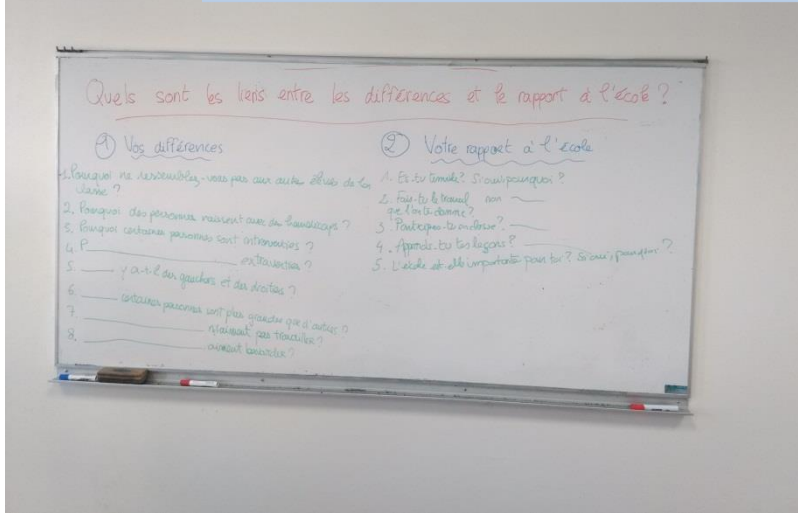 Quels sont les liens entre les différences et le rapport à l'école ?
① Vos différences
1. Pourquoi ne ressemblez-vous pas aux autres élèves de la
classe ?
2. Pourquoi des personnes naissent avec des handicaps ?
3. Pourquoi certaines personnes sont introverties ?
4. P____ extraverties ?
5. ____ y a-t-il des gauchers et des droitiers ?
6. ____ certaines personnes sont plus grandes que d'autres ?
7. ____ n'aiment pas travailler ?
8. ____ aiment travailler ?
② Votre rapport à l'école
1. Es-tu timide ? Si oui, pourquoi ?
2. Fais-tu le travail non ____
que l'on te donne ?
3. Participes-tu en classe ? ____
4. Apprends-tu tes leçons ? ____
5. L'école est-elle importante pour toi ? Si oui, pourquoi ?